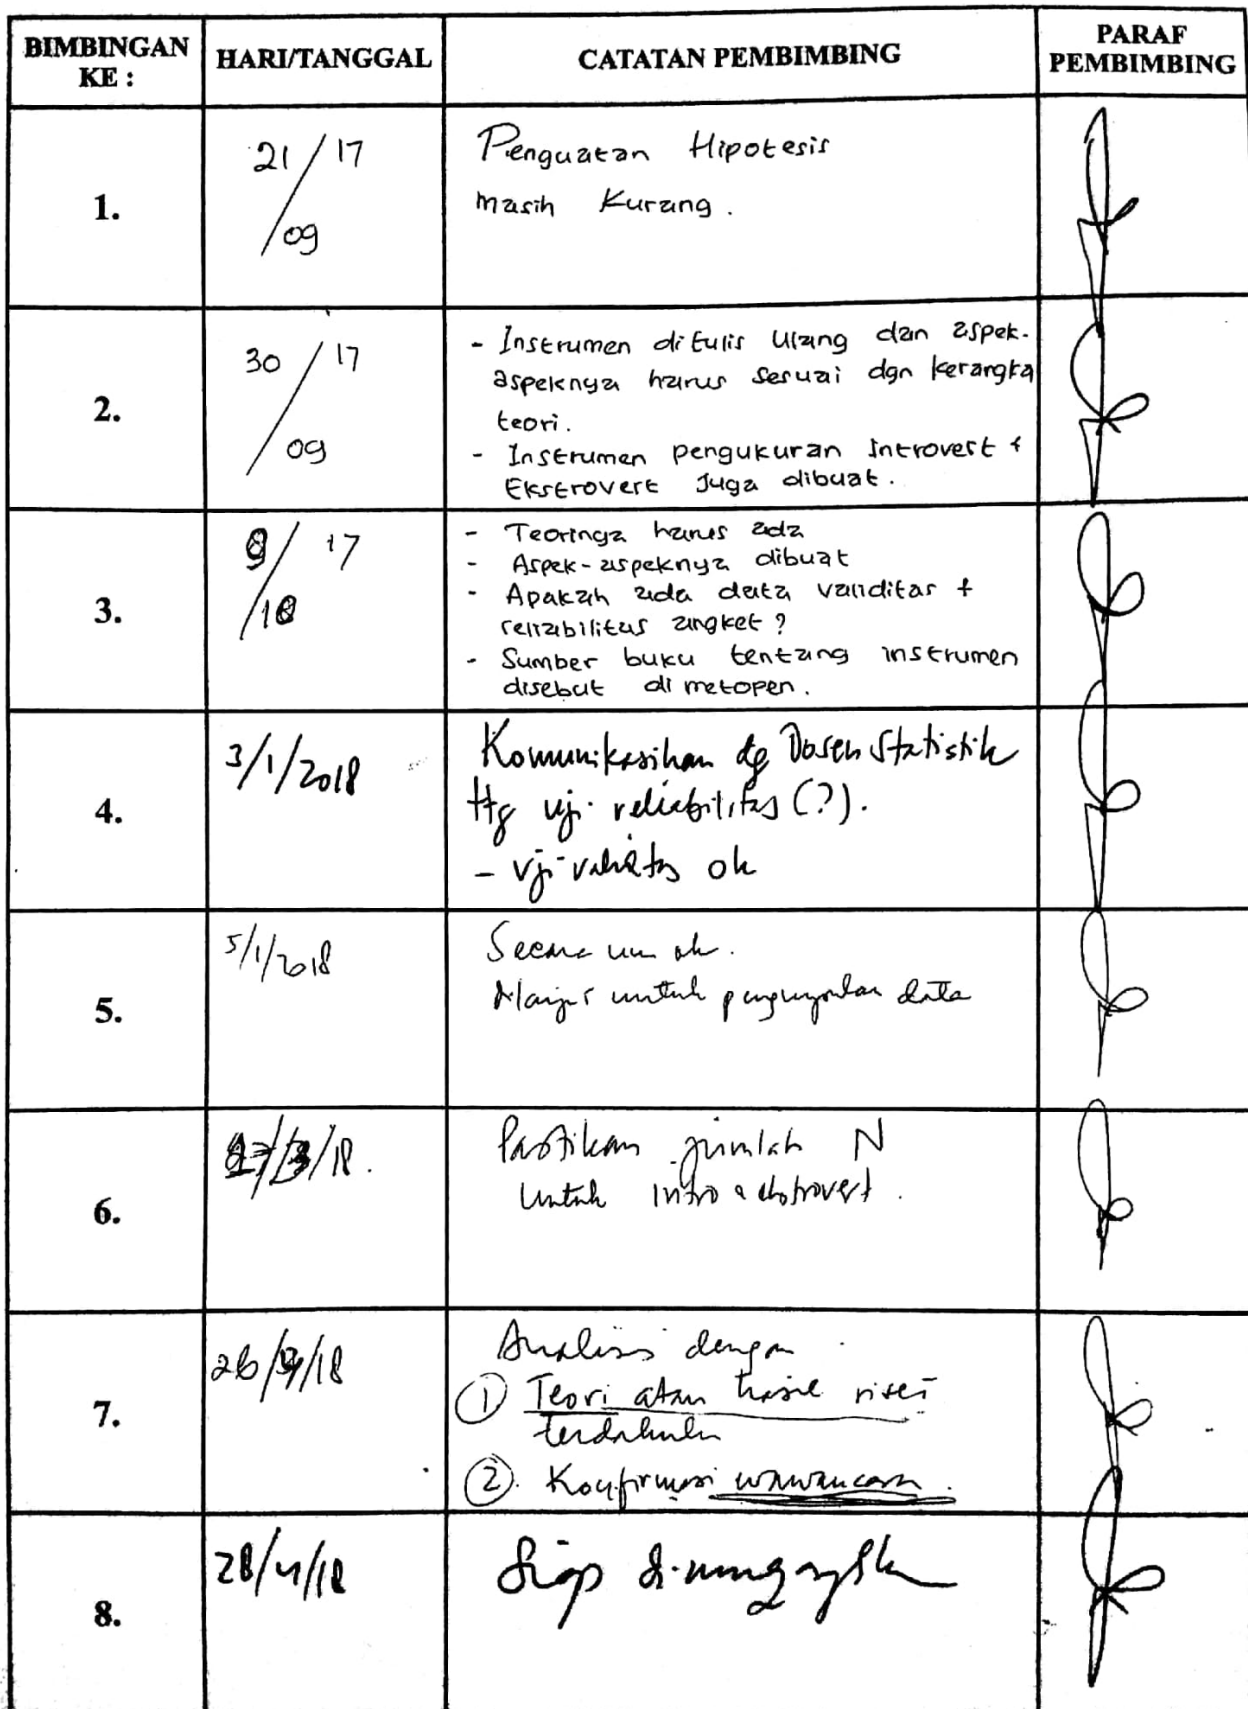 BIMBINGAN KE : HARI/TANGGAL CATATAN PEMBIMBING PARAF PEMBIMBING
1.
21/17
/09
Penguatan Hipotesis
masih Kurang.
2.
30/17
/09
- Instrumen ditulis ulang dan aspek-
aspeknya harus sesuai dgn kerangka
teori.
- Instrumen pengukuran Introvert +
Ekstrovert Juga dibuat.
3.
17
- Teorinya harus ada
- Aspek-aspeknya dibuat
- Apakah ada data validitas +
reliabilitas angket?
- Sumber buku tentang instrumen
disebut di metopen.
4.
3/1/2018
Komunikasihan dg Dosen Statistik
ttg uji reliabilitas (?).
- Uji validitas ok
5.
5/1/2018
Secara um ok.
untuk pengumpulan data
6.
/18.
Pastikan jumlah N
untuk intro & ekstrovert.
7.
26/ /18
Analisis dengan
① Teori atau hasil riset
terdahulu
②. Konfirmasi wawancara.
8.
28/4/18
Siap